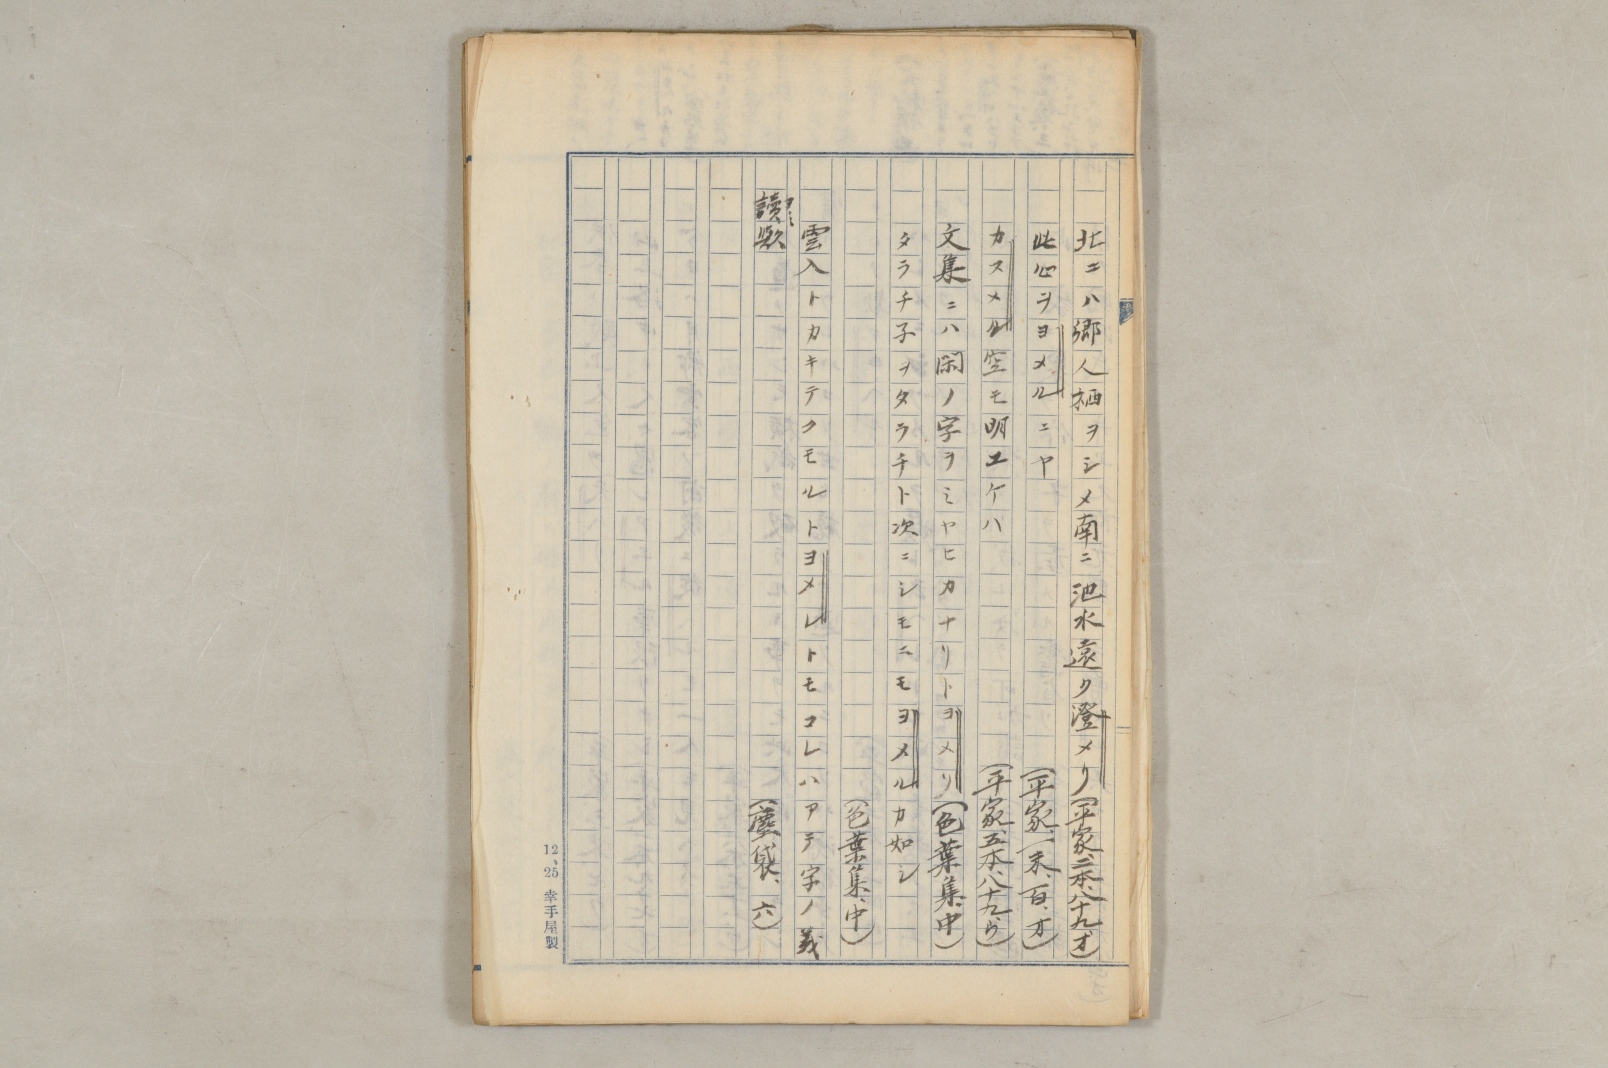 北ニハ郷人栖ヲシメ南ニ池水遠ク澄メリ(平家、二本、八十九オ)
此心ヲヨメルニヤ(平家、一末、百、オ)
カスメル空モ明エケハ(平家、五本、八十九、ウ)
文集ニハ閑ノ字ヲミヤヒカナリトヨメリ(色葉集、中)
タラチ子ヲタラチト次ニシモニモヨメルカ如シ
(色葉集、中)
雲入トカキテクモルトヨメレトモコレハアテ字ノ義
讀歟(塵袋、六)
ヨミ
12、25 幸手屋製